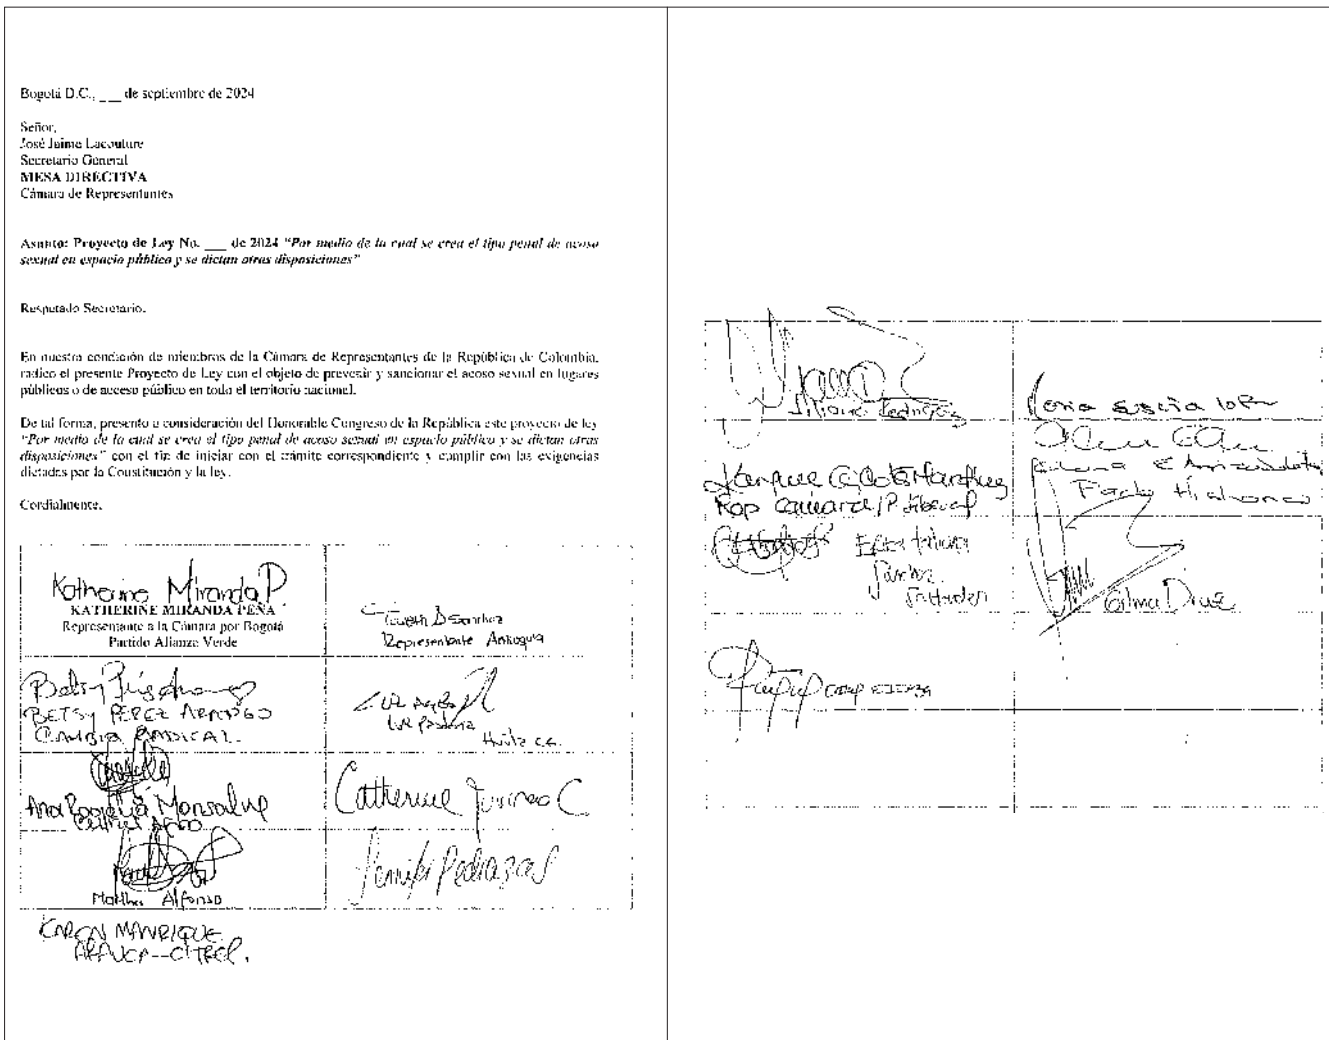 Bogotá D.C., ___ de septiembre de 2024
Señor,
José Jaime Lacouture
Secretario General
MESA DIRECTIVA
Cámara de Representantes
Asunto: Proyecto de Ley No. ___ de 2024 “Por medio de la cual se crea el tipo penal de acoso
sexual en espacio público y se dictan otras disposiciones”
Respetado Secretario,
En nuestra condición de miembros de la Cámara de Representantes de la República de Colombia,
radico el presente Proyecto de Ley con el objeto de prevenir y sancionar el acoso sexual en lugares
públicos o de acceso público en todo el territorio nacional.
De tal forma, presento a consideración del Honorable Congreso de la República este proyecto de ley
“Por medio de la cual se crea el tipo penal de acoso sexual en espacio público y se dictan otras
disposiciones” con el fin de iniciar con el trámite correspondiente y cumplir con las exigencias
dictadas por la Constitución y la ley.
Cordialmente,
Katherine Miranda P
KATHERINE MIRANDA PEÑA
Representante a la Cámara por Bogotá
Partido Alianza Verde
Representante Antioquia
BETSY PÉREZ ARANGO
CAMBIO RADICAL.
Ana Rogelia Monsalve
Catherine Juvinao C
Martha Alfonso
Jennifer Pedraza S
KAREN MANRIQUE
ARAUCA - CITREP.
Rep Camara/P. Liberal
Pacto Historico
Gilma Diaz